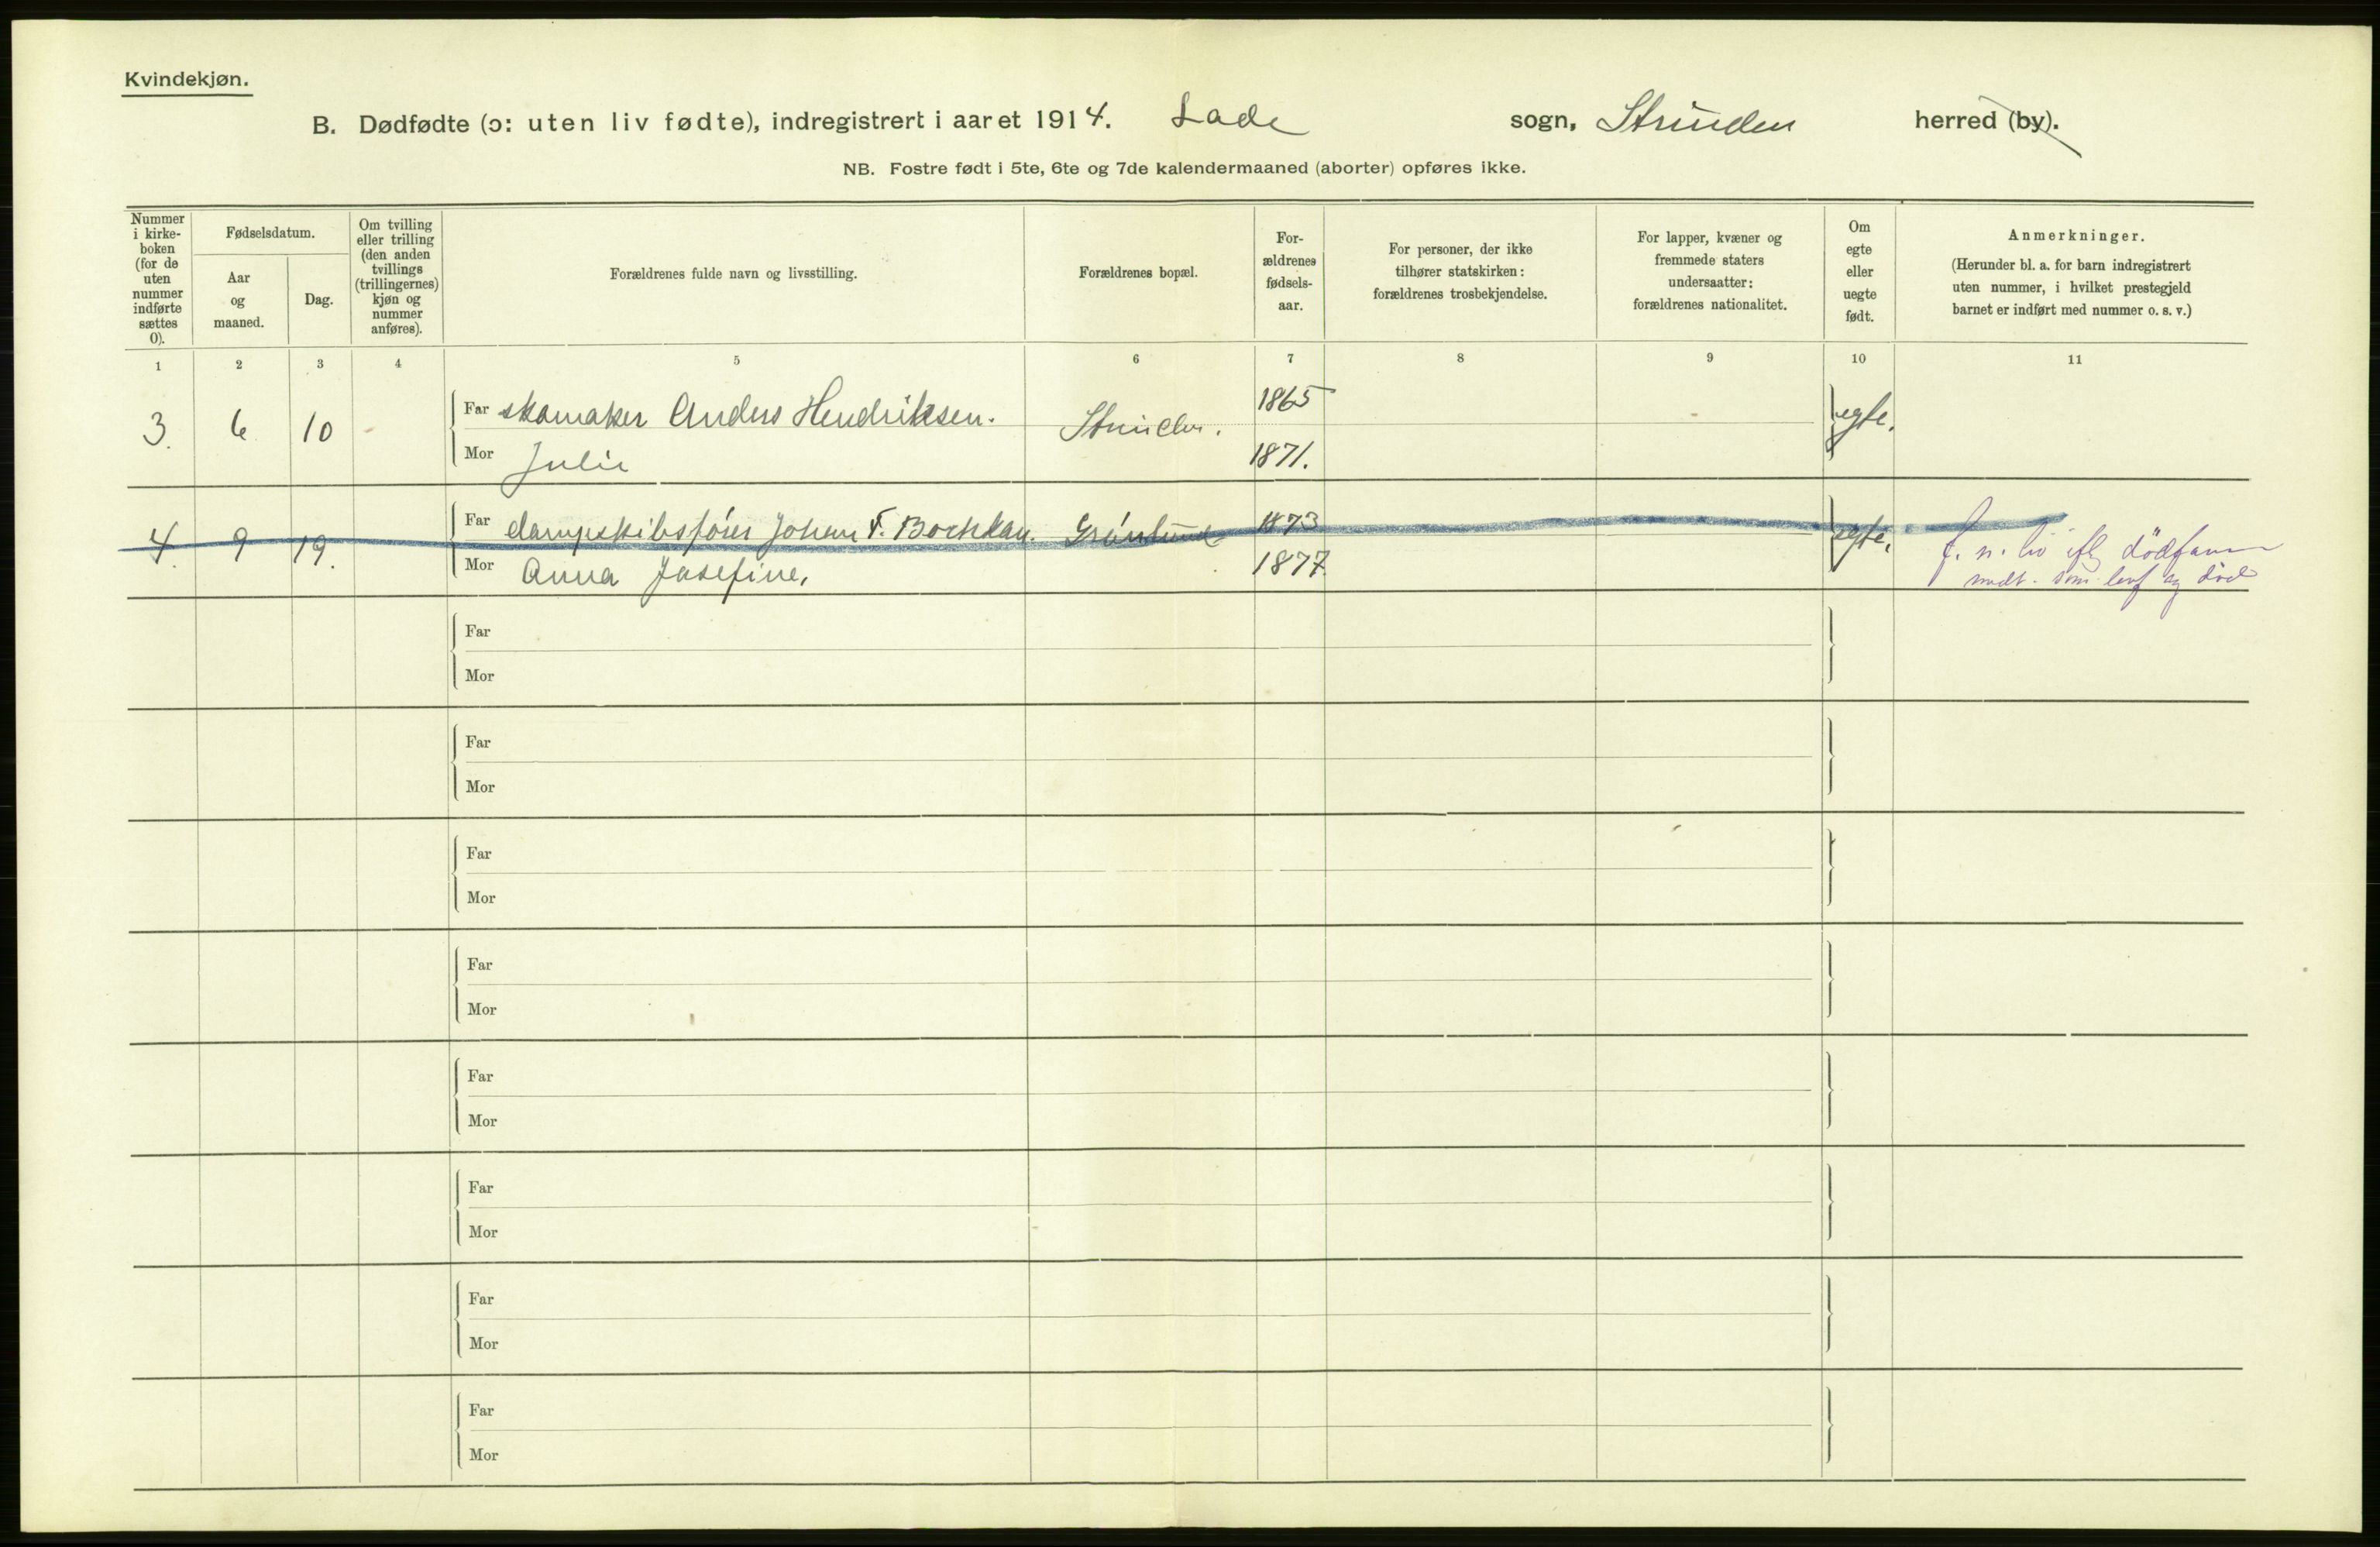 Kvindekjøn.
B. Dødfødte (ɔ: uten liv fødte), indregistrert i aaret 1914. Lade sogn, Strinden herred (by).
NB. Fostre født i 5te, 6te og 7de kalendermaaned (aborter) opføres ikke.
Nummer
i kirke-
boken
(for de
uten
nummer
indførte
sættes
0).
Fødselsdatum.
Aar
og
maaned.
Dag.
Om tvilling
eller trilling
(den anden
tvillings
(trillingernes)
kjøn og
nummer
anføres).
Forældrenes fulde navn og livsstilling.
Forældrenes bopæl.
For-
ældrenes
fødsels-
aar.
For personer, der ikke
tilhører statskirken:
forældrenes trosbekjendelse.
For lapper, kvæner og
fremmede staters
undersaatter:
forældrenes nationalitet.
Om
egte
eller
uegte
født.
Anmerkninger.
(Herunder bl. a. for barn indregistrert
uten nummer, i hvilket prestegjeld
barnet er indført med nummer o. s. v.)
1 2 3 4 5 6 7 8 9 10 11
3. 6 10 - Far skomaker Anders Hendriksen. Strinden. 1865 egte.
Mor Julie 1871.
4. 9 19. Far dampskibsfører Johan F. Grønlund 1873 egte.
Mor Anna Josefine. 1877.
f. n. liv ifl dödfanm
mdt. som levf og död
Far
Mor
Far
Mor
Far
Mor
Far
Mor
Far
Mor
Far
Mor
Far
Mor
Far
Mor